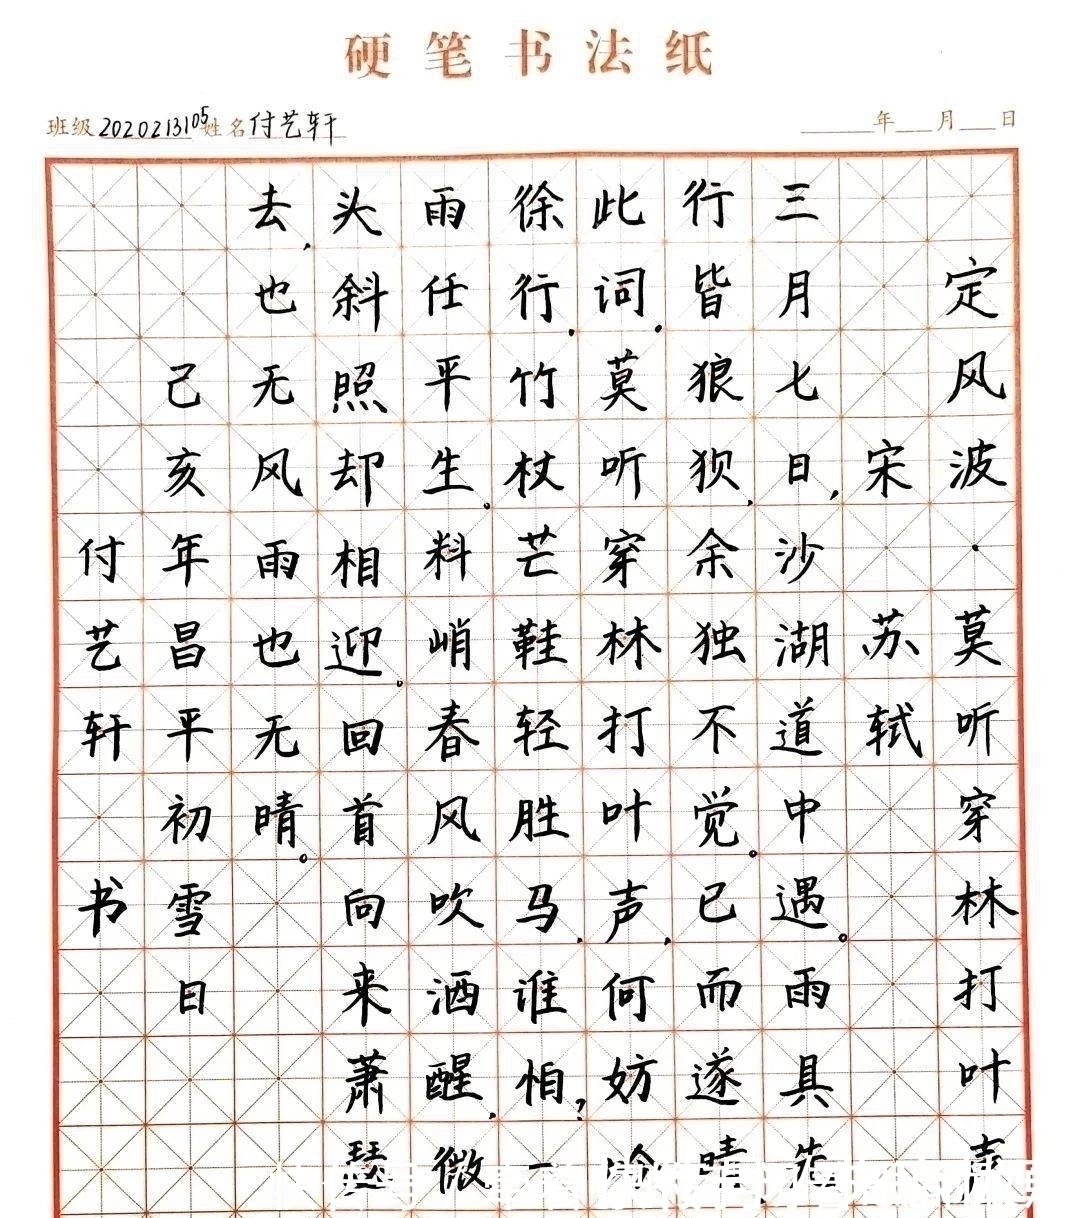 硬笔书法纸
班级 2020213105 姓名 付艺轩 年 月 日
定风波·莫听穿林打叶声
宋 苏轼
三月七日,沙湖道中遇。雨具先
行皆狼狈,余独不觉。已而遂晴
此词.莫听穿林打叶声,何妨吟
徐行,竹杖芒鞋轻胜马,谁怕?一
雨任平生。料峭春风吹酒醒,微
头斜照却相迎。回首向来萧瑟
去,也无风雨也无晴。
己亥年昌平初雪日
付艺轩 书